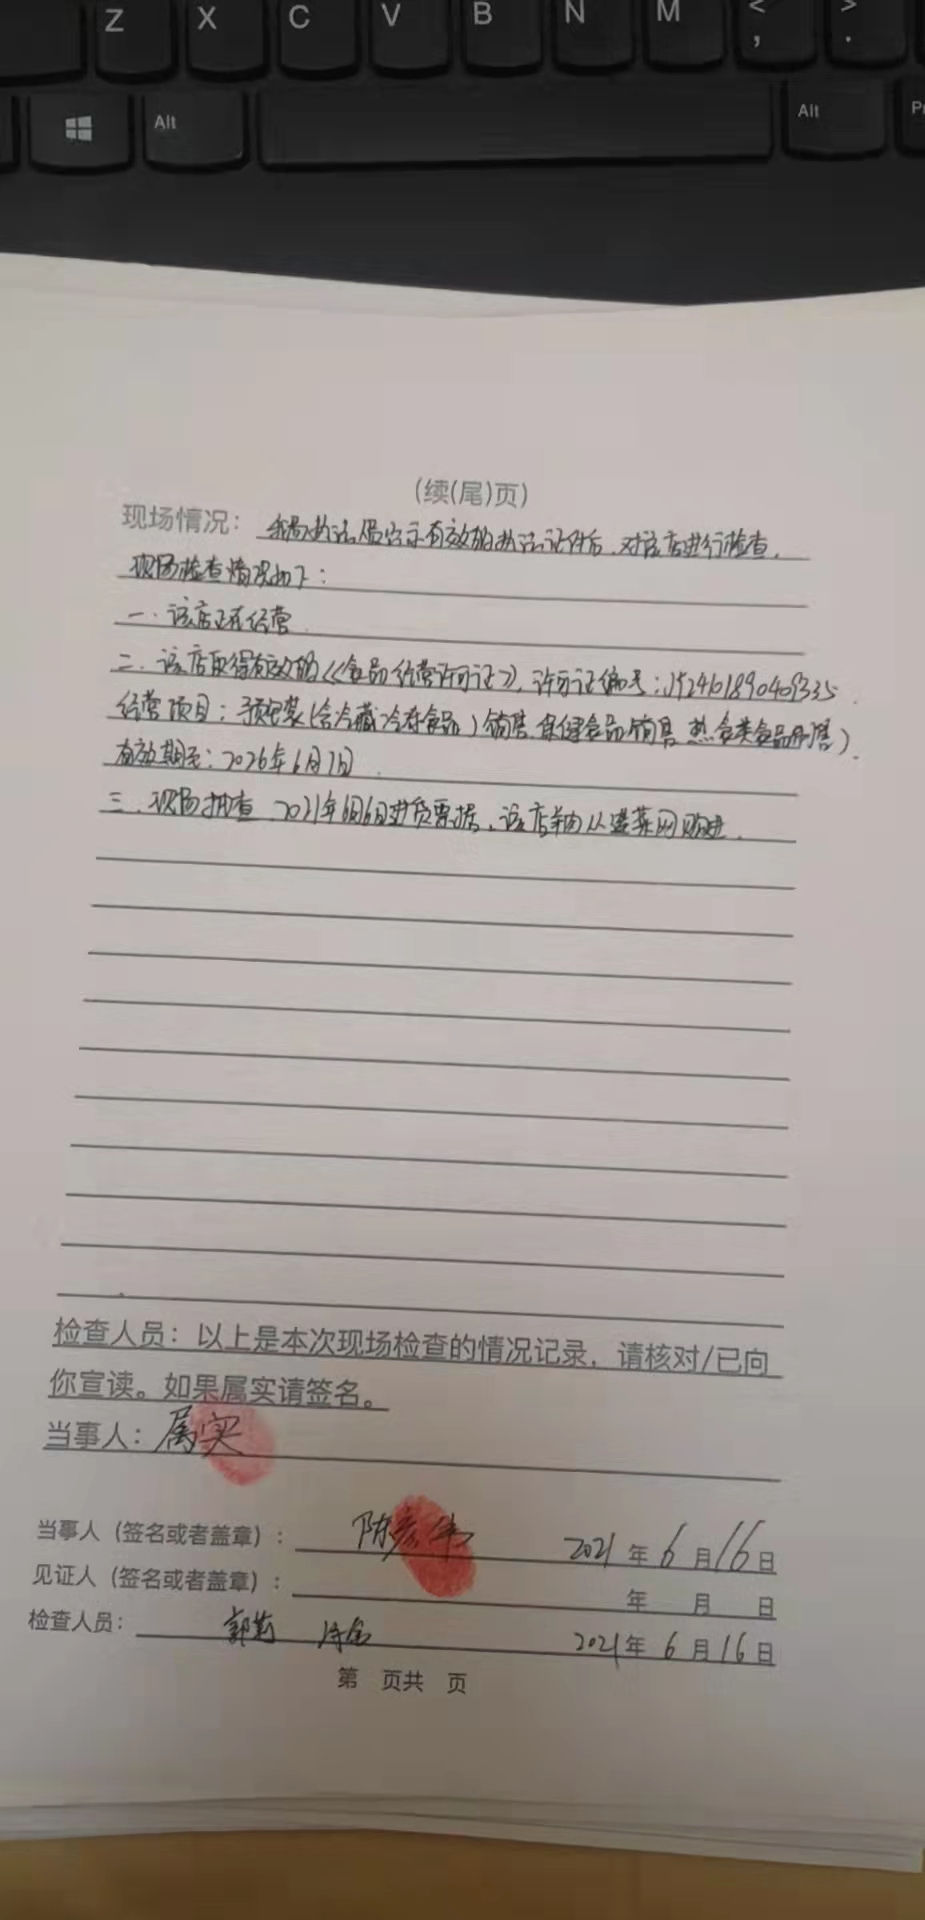 Z X C V B N M < ,  > .
Alt Alt
(续(尾)页)
现场情况： 我局执法人员出示有效的执法证件后，对该店进行检查，
现场检查情况如下：
一、该店正在经营
二、该店取得有效的《食品经营许可证》，许可证编号：JY24101890409335
经营项目：预包装(含冷藏冷冻食品)销售，保健食品销售，热食类食品制售)
有效期至：2026年6月7日
三、现场抽查2021年6月6日进货票据，该店羊肉从 网购进
检查人员：以上是本次现场检查的情况记录，请核对/已向
你宣读。如果属实请签名。
当事人：属实
当事人（签名或者盖章）： 陈彦伟 2021 年 6 月 16 日
见证人（签名或者盖章）： 年 月 日
检查人员： 2021 年 6 月 16 日
第 页共 页